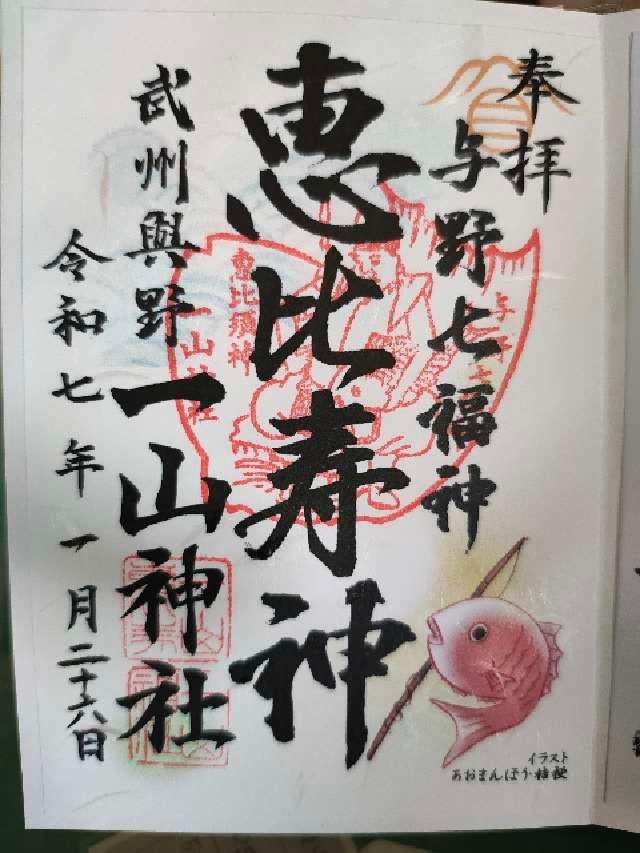 奉拝
与野七福神
恵比寿神
武州與野
一山神社
令和七年一月二十六日
恵比須神
一山神社
イラスト
あおまんぼう桔梗